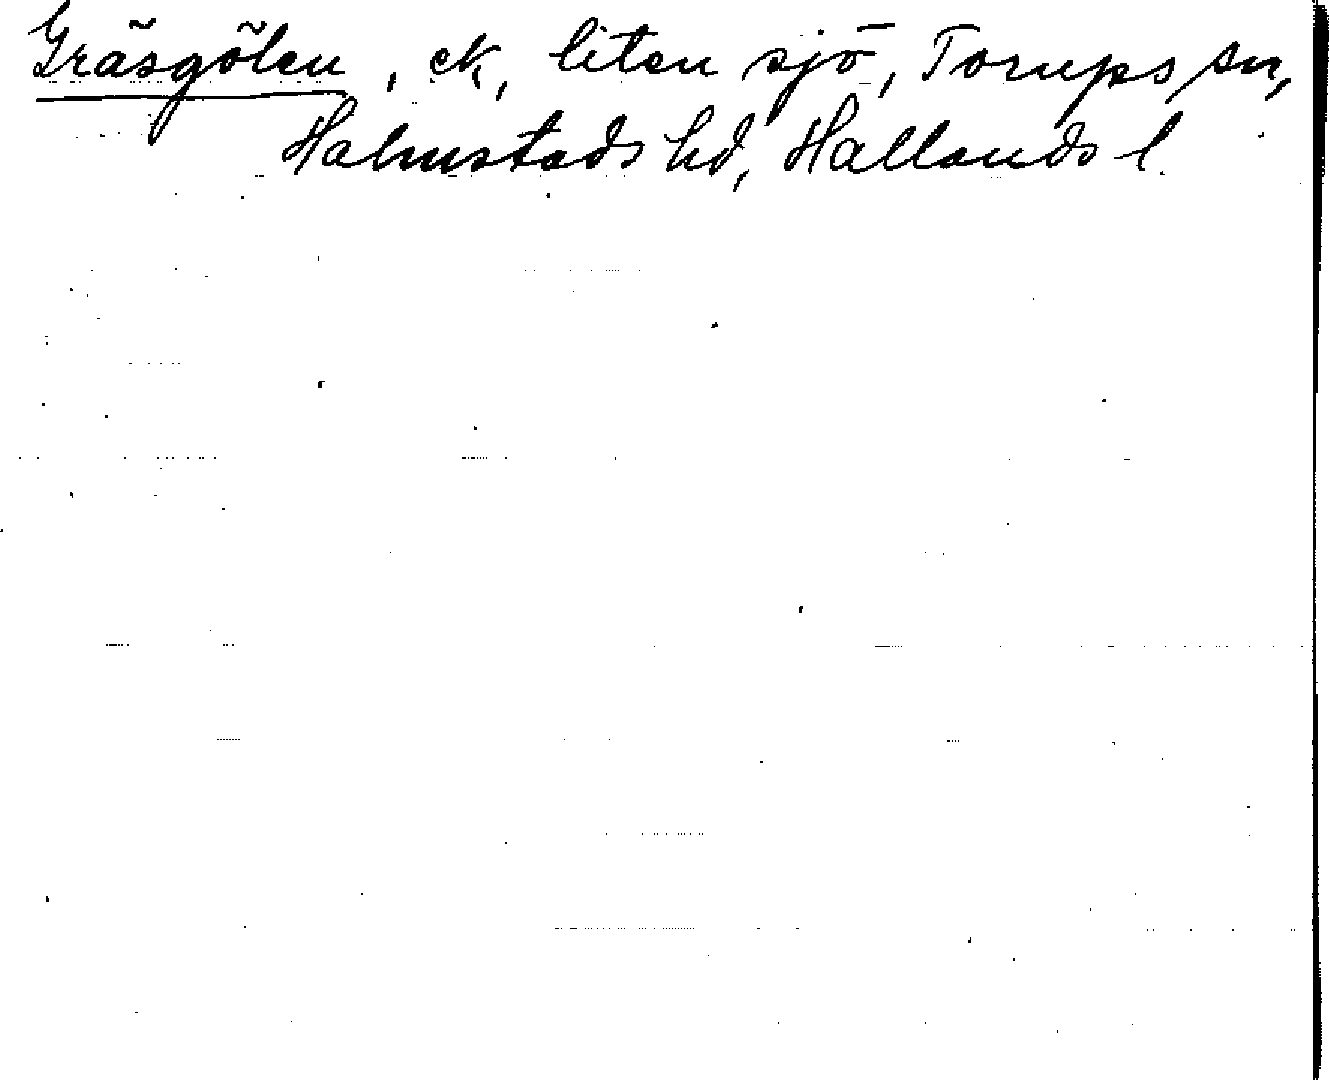 Gräsgölen, ek, liten sjö, Torups sn,
Halmstads hd, Hallands l